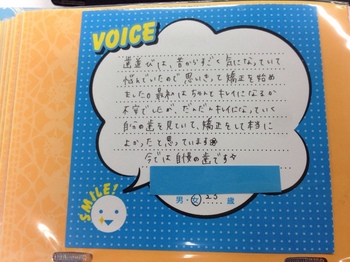 VOICE
歯並びは、昔からすごく気になっていて
悩んでいたので思いきって矯正を始め
ました。最初はちゃんとキレイになるか
不安でしたが、だんだんキレイになっていく
自分の歯を見ていて、矯正をして本当に
よかったと思っています
今では自慢の歯です
男・女 歳
SMILE!